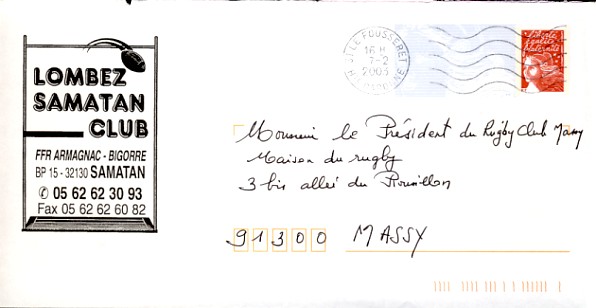 LOMBEZ
SAMATAN
CLUB
FFR ARMAGNAC - BIGORRE
BP 15 - 32130 SAMATAN
✆ 05 62 62 30 93
Fax 05 62 62 60 82
LE FOUSSERET
16 H
7-2
2003
Liberté
égalité
fraternité
Monsieur le Président du Rugby Club Massy
Maison du rugby
3 bis allée du Roussillon
91300 MASSY